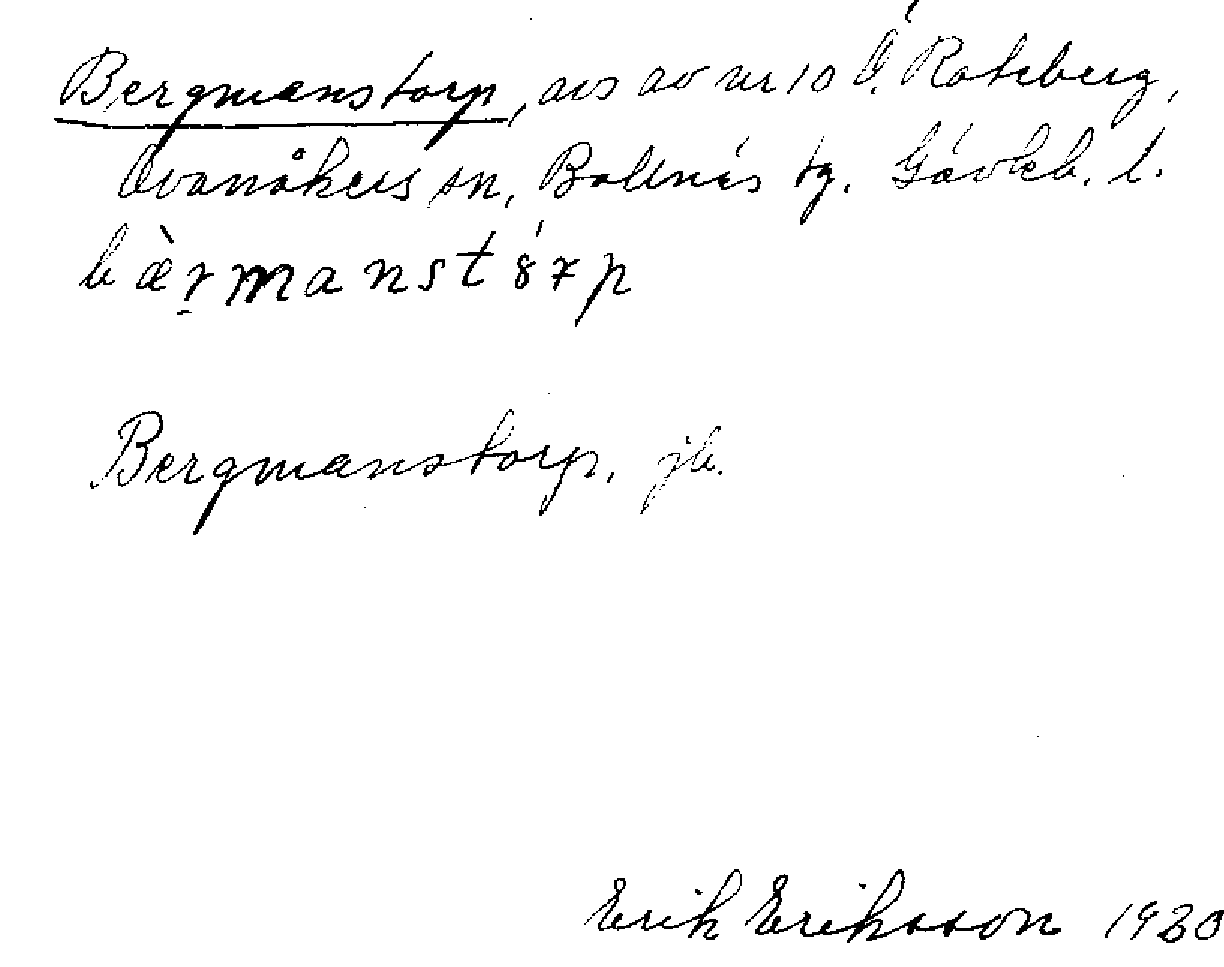 Bergmanstorp, avs av nr 10 Ö. Roteberg,
Ovanåkers sn, Bollnäs tg. Gävleb. l.
bæ̀r̠manstórp
Bergmanstorp, jb.
Erik Eriksson 1930